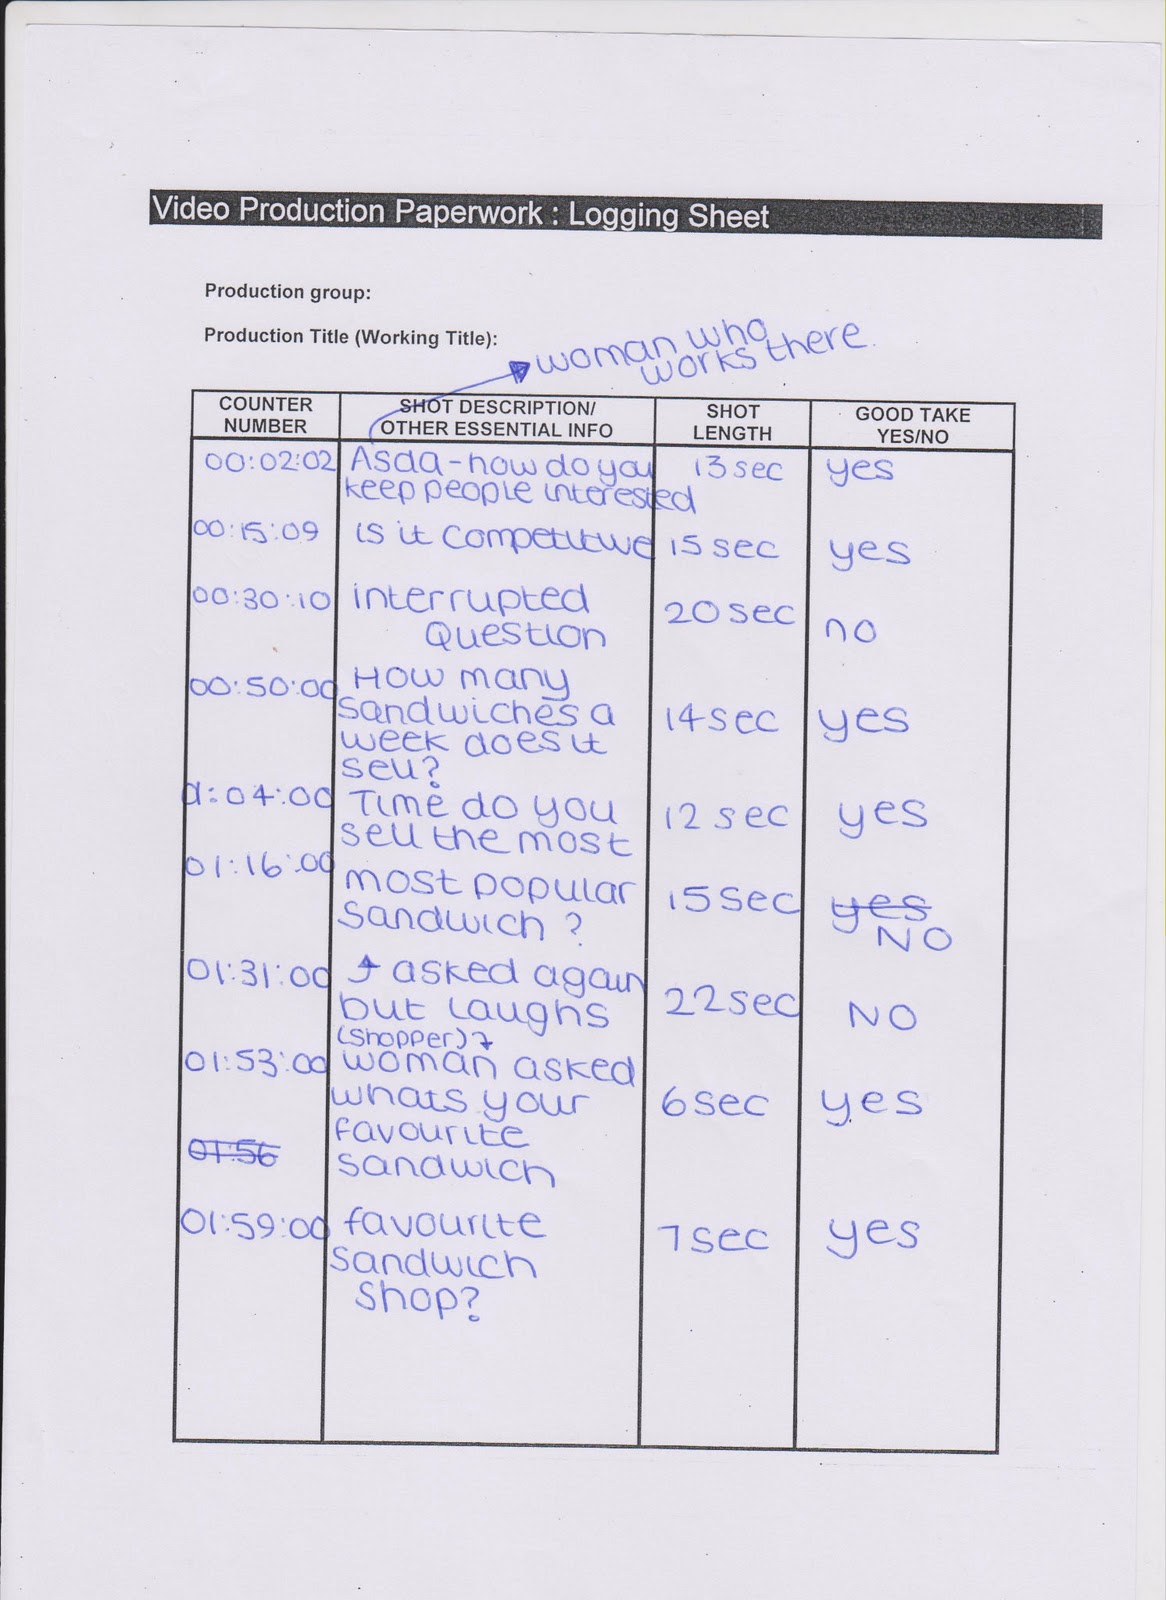 Video Production Paperwork : Logging Sheet
Production group:
Production Title (Working Title):
woman who
works there.
COUNTER
NUMBER
SHOT DESCRIPTION/
OTHER ESSENTIAL INFO
SHOT
LENGTH
GOOD TAKE
YES/NO
00:02:02 Asda - how do you 13 sec yes
keep people interested
00:15:09 is it competitive 15 sec yes
00:30:10 interrupted 20 sec no
Question
00:50:00 How many 14 sec yes
sandwiches a
week does it
sell?
01:04:00 Time do you 12 sec yes
sell the most
01:16:00 most popular 15 sec yes
sandwich ? NO
01:31:00 asked again 22 sec NO
but laughs
(shopper)
01:53:00 woman asked 6 sec yes
whats your
favourite
01:56 sandwich
01:59:00 favourite 7 sec yes
sandwich
shop?